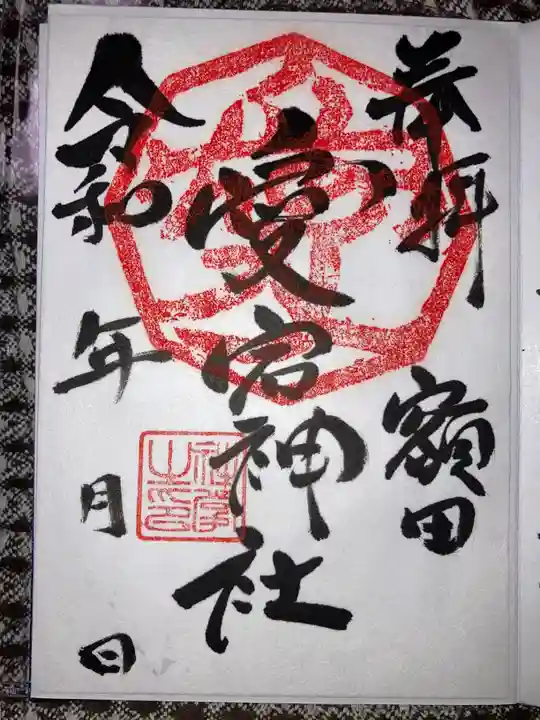 奉拝
額田
愛宕神社
令和
年
月
日